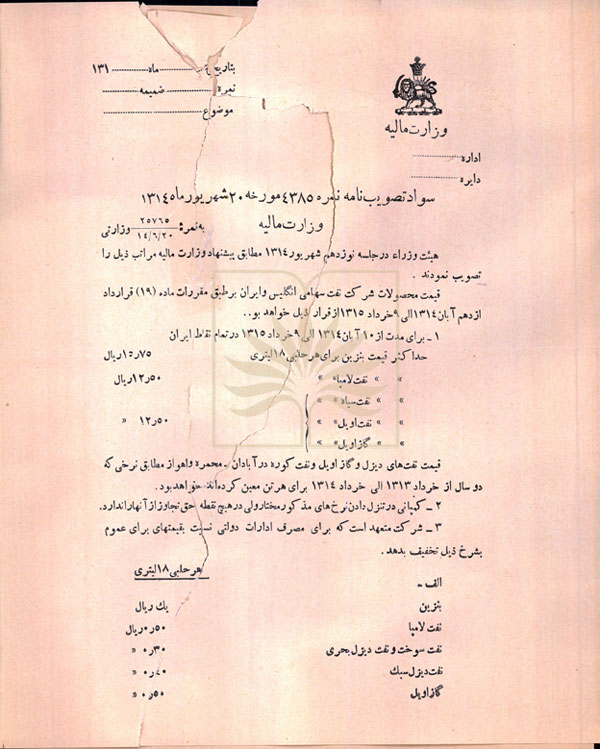 بتاریخ ............ ماه ............ ۱۳۱
نمره ............ ضمیمه ............
موضوع ............
وزارت مالیه
اداره ............
دایره ............
سواد تصویب نامه نمره ۴۳۸۵ مورخه ۲۰ شهریور ماه ۱۳۱۴
وزارت مالیه
به نمره: ۲۵۷۶۵ وزارتی
۱۴/۶/۲۰
هیئت وزراء در جلسه نوزدهم شهریور ۱۳۱۴ مطابق پیشنهاد وزارت مالیه مراتب ذیل را
تصویب نمودند .
قیمت محصولات شرکت نفت سهامی انگلیس و ایران بر طبق مقررات ماده (۱۹) قرارداد
از دهم آبان ۱۳۱۴ الی ۹ خرداد ۱۳۱۵ از قرار ذیل خواهد بود..
۱ ـ برای مدت از ۱۰ آبان ۱۳۱۴ الی ۹ خرداد ۱۳۱۵ در تمام نقاط ایران
حداکثر قیمت بنزین برای هر حلبی ۱۸ لیتری ۷۵ر۱۵ ریال
» » نفت لامپا » » ۵۰ر۱۲ ریال
» » نفت سیاه » »
» » نفت اویل » » ۵۰ر۱۲ »
» » گاز اویل » »
قیمت نفت‌های دیزل و گاز اویل و نفت کوره در آبادان ـ محمره و اهواز مطابق نرخی که
دو سال از خرداد ۱۳۱۳ الی خرداد ۱۳۱۴ برای هر تن معین کرده‌اند خواهد بود.
۲ ـ کمپانی در تنزل دادن نرخ های مذکور مختار ولی در هیچ نقطه حق تجاوز از آنها را ندارد.
۳ ـ شرکت متعهد است که برای مصرف ادارات دولتی نسبت بقیمتهای برای عموم
بشرح ذیل تخفیف بدهد .
هر حلبی ۱۸ لیتری
الف ـ
بنزین یك ریال
نفت لامپا ۵۰ر۰ ریال
نفت سوخت و نفت دیزل بحری ۳۰ر۰ »
نفت دیزل سبك ۷۰ر۰ »
گاز اویل ۵۰ر۰ »